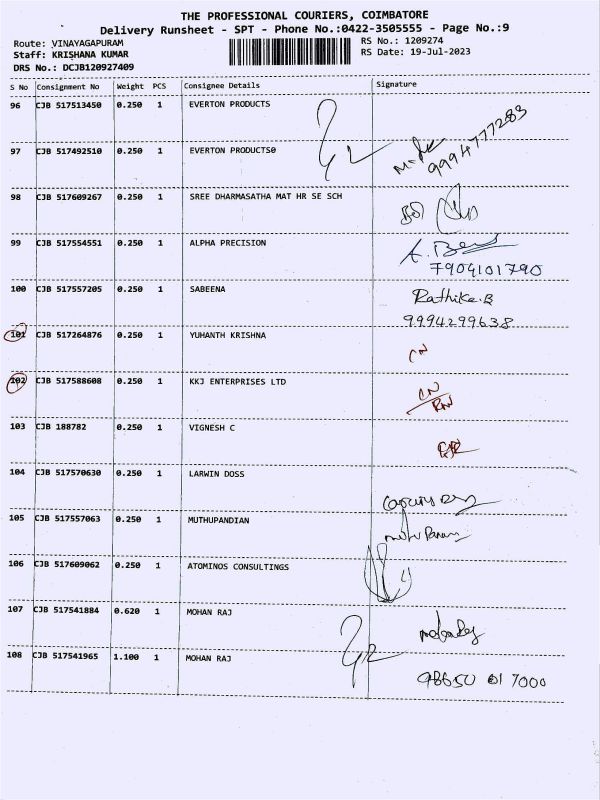 THE PROFESSIONAL COURIERS, COIMBATORE
Delivery Runsheet - SPT - Phone No.:0422-3505555 - Page No.:9
Route: VINAYAGAPURAM
RS No.: 1209274
Staff: KRISHANA KUMAR
RS Date: 19-Jul-2023
DRS No.: DCJB120927409
S No Consignment No Weight PCS Consignee Details Signature
96 CJB 517513450 0.250 1 EVERTON PRODUCTS
9994777283
97 CJB 517492510 0.250 1 EVERTON PRODUCTS0
98 CJB 517609267 0.250 1 SREE DHARMASATHA MAT HR SE SCH
99 CJB 517554551 0.250 1 ALPHA PRECISION
7904101790
100 CJB 517557205 0.250 1 SABEENA Rathika.B
9994299638
101 CJB 517264876 0.250 1 YUHANTH KRISHNA
CN
102 CJB 517588608 0.250 1 KKJ ENTERPRISES LTD
CN
RN
103 CJB 188782 0.250 1 VIGNESH C
104 CJB 517570630 0.250 1 LARWIN DOSS
105 CJB 517557063 0.250 1 MUTHUPANDIAN
106 CJB 517609062 0.250 1 ATOMINOS CONSULTINGS
107 CJB 517541884 0.620 1 MOHAN RAJ
108 CJB 517541965 1.100 1 MOHAN RAJ
98650 017000